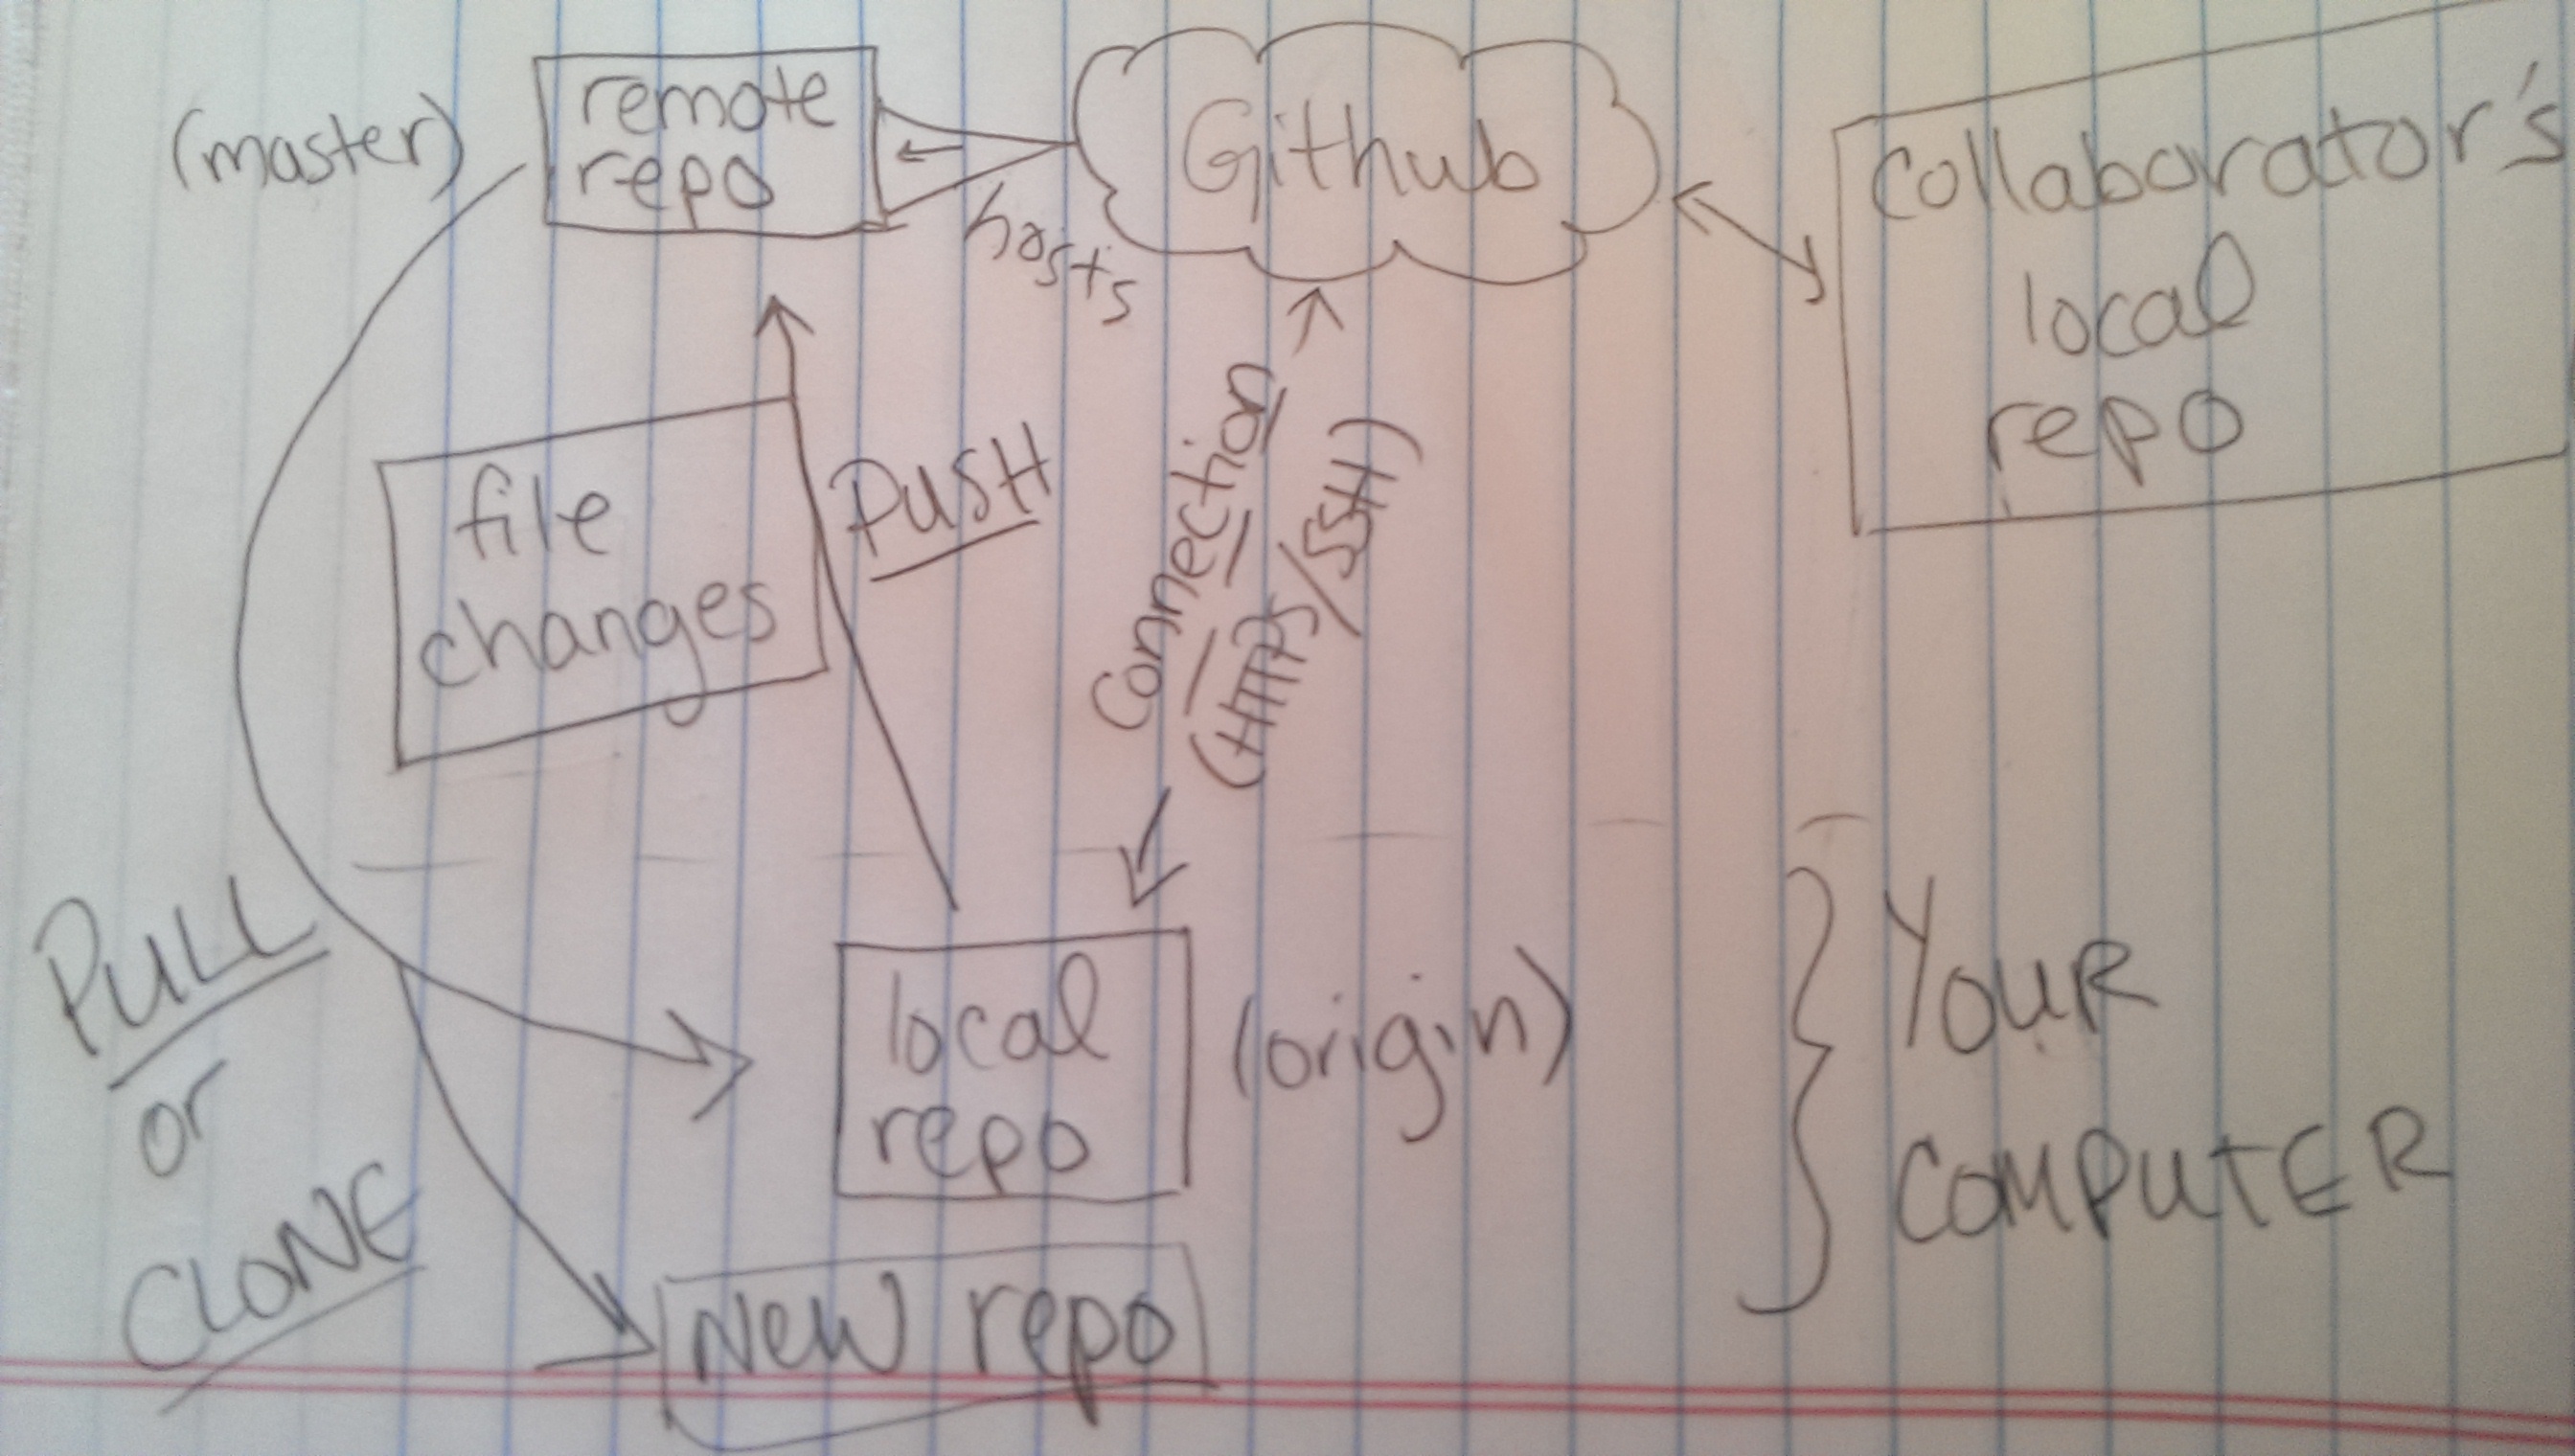 (master)
remote
repo
hosts
Github
Collaborator's
local
repo
file
changes
PUSH
Connection
(HTTPS/SSH)
PULL
or
CLONE
local
repo
(origin)
New repo
YOUR
COMPUTER